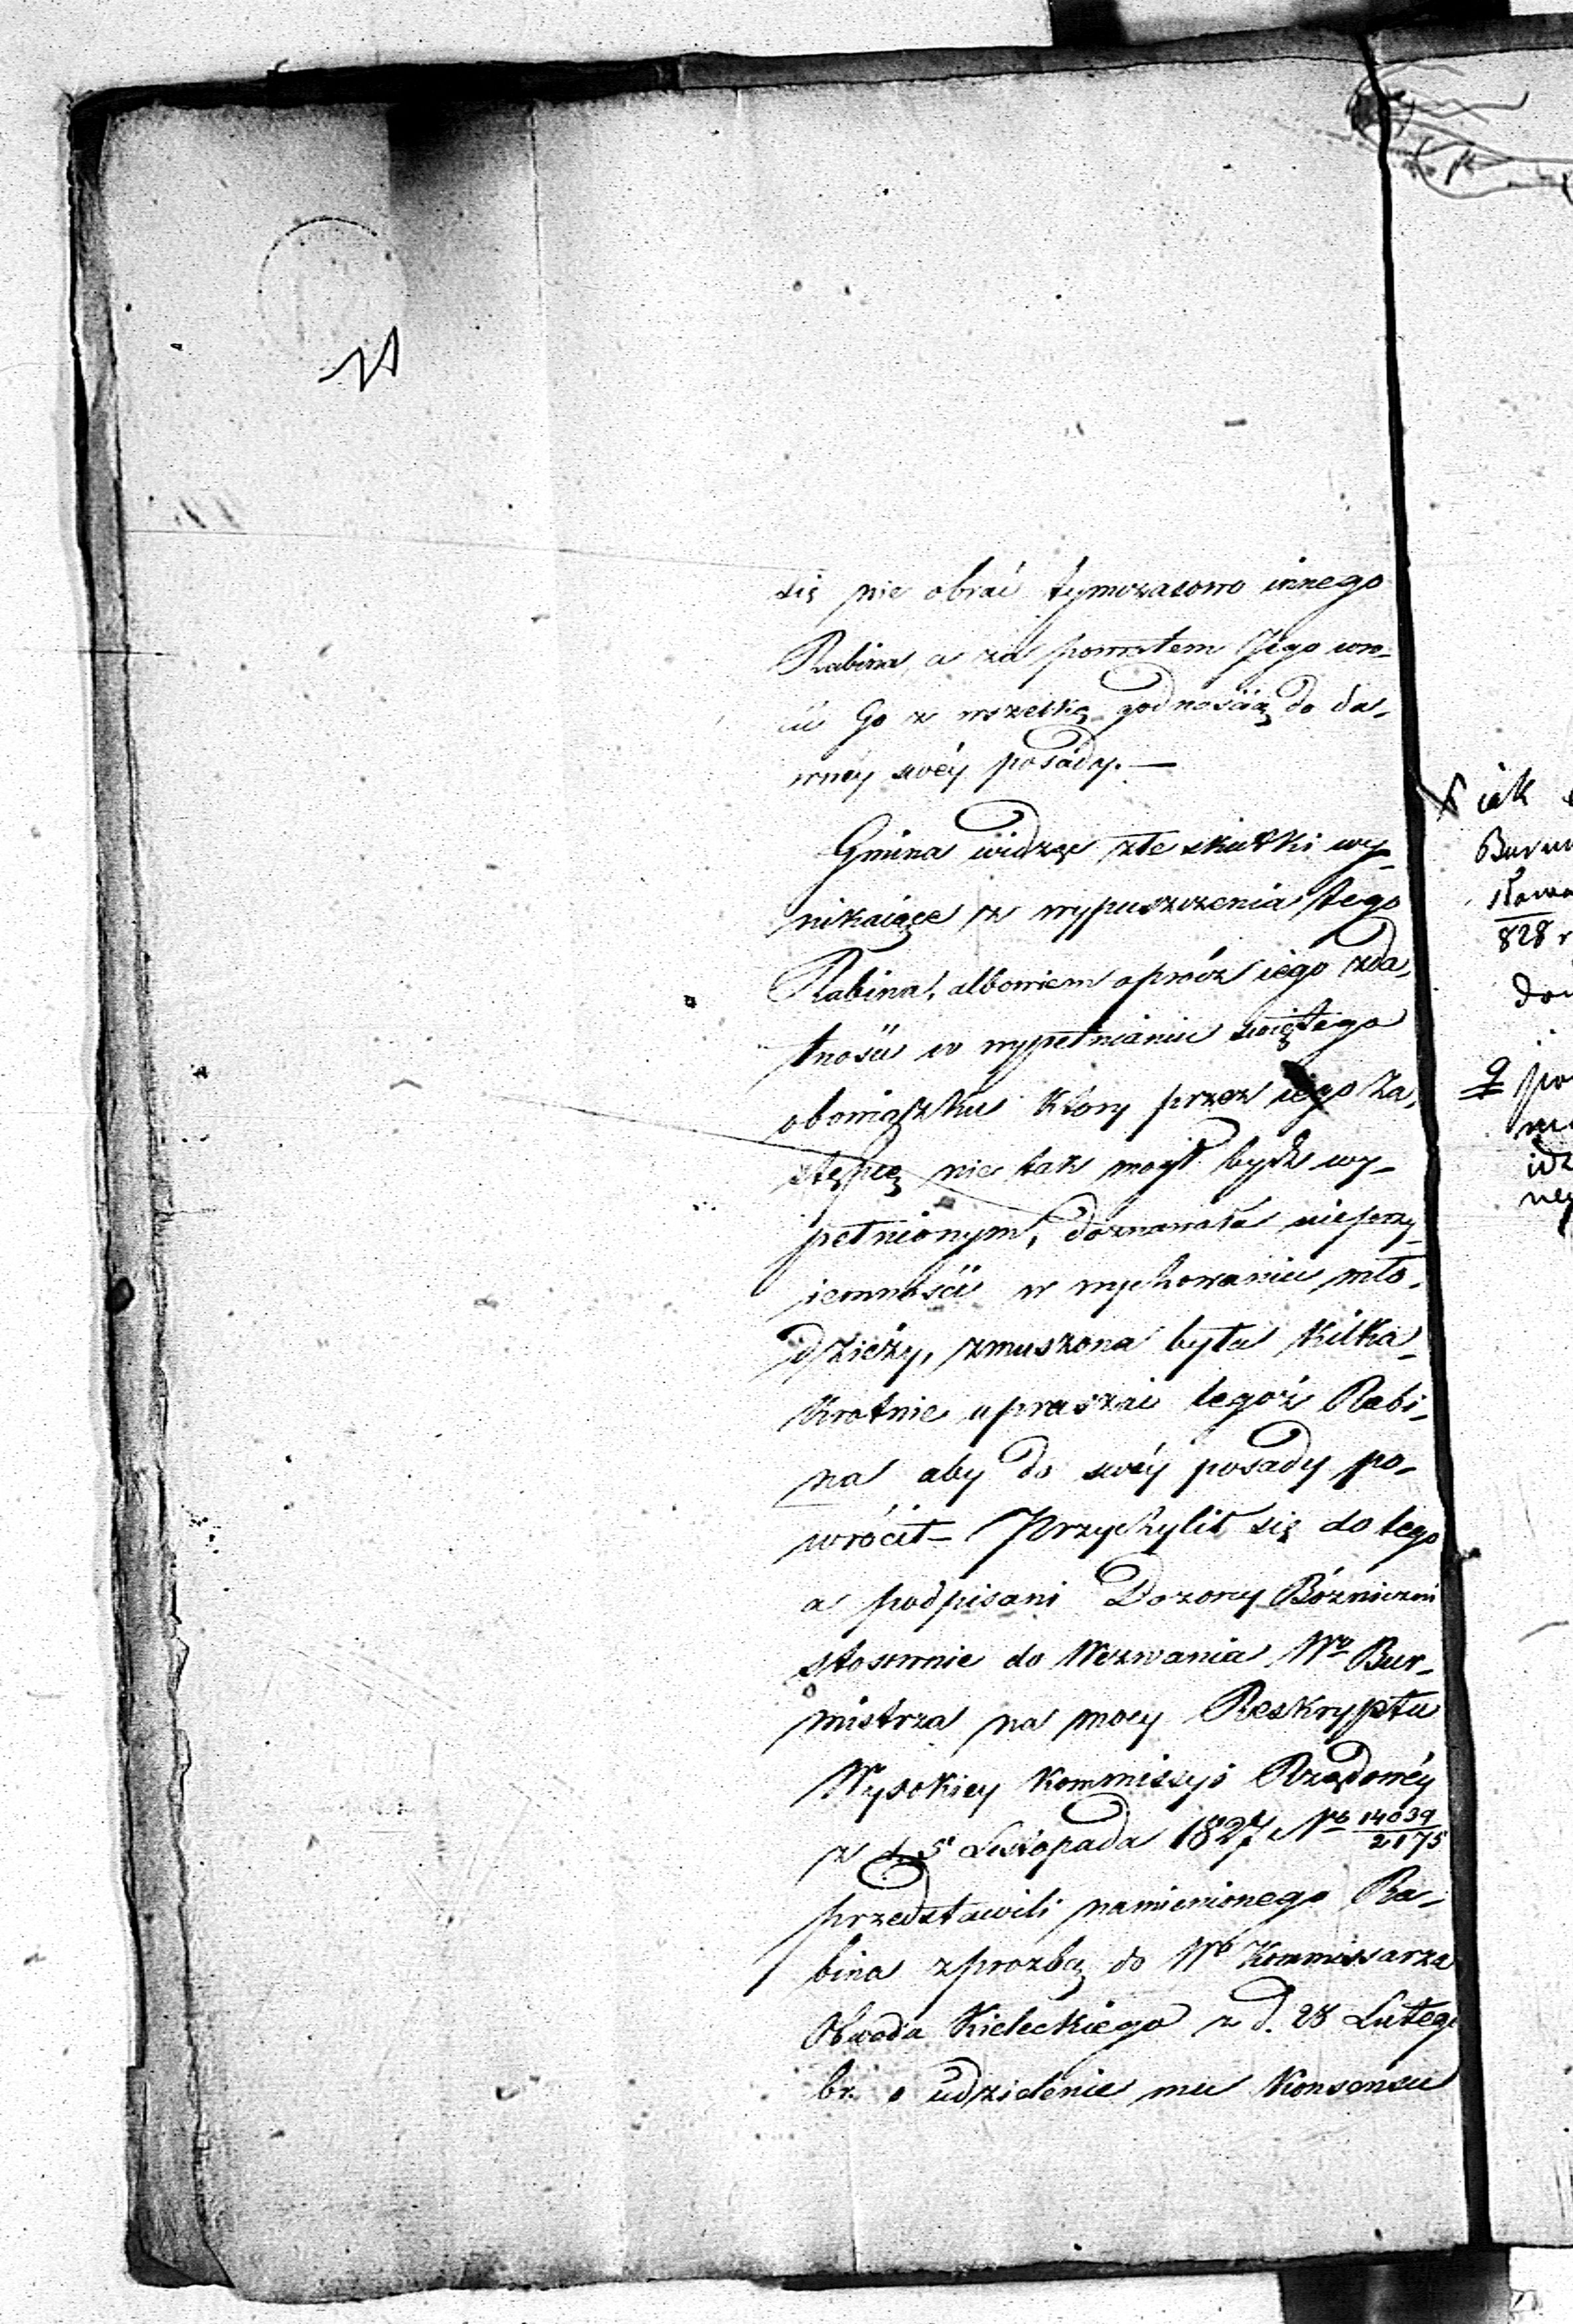 się nie obrać tymczasowo innego
Rabina, a za powrotem Jego wró-
cić Go z wszelką godnością do da-
wnéy swéy posady. —
Gmina widząc złe skutki wy-
nikaiące z wypuszczenia tego
Rabina, albowiem oprócz iego zda-
tności w wypełnianiu świętego
obowiązku który przez iego Za-
stępcę nie tak mógł bydź wy-
pełnionym, doznawała nieprzy-
iemności w wychowaniu mło-
dzieży, zmuszona była kilka-
krotnie upraszać tegoż Rabi-
na aby do swéy posady po-
wrócił – Przychylił się do tego
a podpisani Dozory Bóżniczni
stosownie do Wezwania Wo Bur-
mistrza na mocy Reskryptu
Wysokiey Kommissyi Rządowéy
z d. 5 Listopada 1827 No 14039/2175
przedstawili namienionego Ra-
bina z prozbą do Wo Kommissarza
Obwodu Kieleckiego z d. 28 Lutego
br. o udzielenie mu Konsensu
iak
828 r